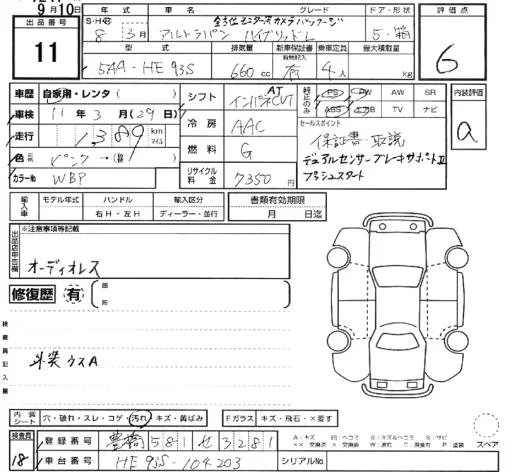 9月10日
出品番号
11
年式
車名
グレード
ドア・形状
全方位モニター用カメラパッケージ
S・H・R 8年3月 アルトラパン ハイブリッドL 5・箱
型式
排気量
新車保証書
有無記入
乗車定員
最大積載量
5AA-HE93S 660cc 有 4人 kg
評価点
6
車歴 自家用・レンタ( )
車検 11年3月(29日)
走行 1,389 km マイル
色 ピンク→(替 )
カラーNo WBP
シフト AT インパネCVT
冷房 AAC
燃料 G
リサイクル料金 7350円
純正のみ
PS PW AW SR
ABS エアB TV ナビ
セールスポイント
保証書・取説
デュアルセンサーブレーキサポートⅡ
プッシュスタート
内装評価
a
輸入車
モデル年式 ハンドル 輸入区分 書類有効期限
右H・左H ディーラー・並行 月 日迄
出品店申告欄
※注意事項等記載
オーディオレス
修復歴 有 ( 箇所 )
検査員記入欄
斗奨ウスA
内装シート 穴・破れ・スレ・コゲ・汚れ・キズ・黄ばみ
Fガラス キズ・飛石・×要す
検査員 18
登録番号 豊橋581せ3281
車台番号 HE93S-104203
シリアルNo.
スペア